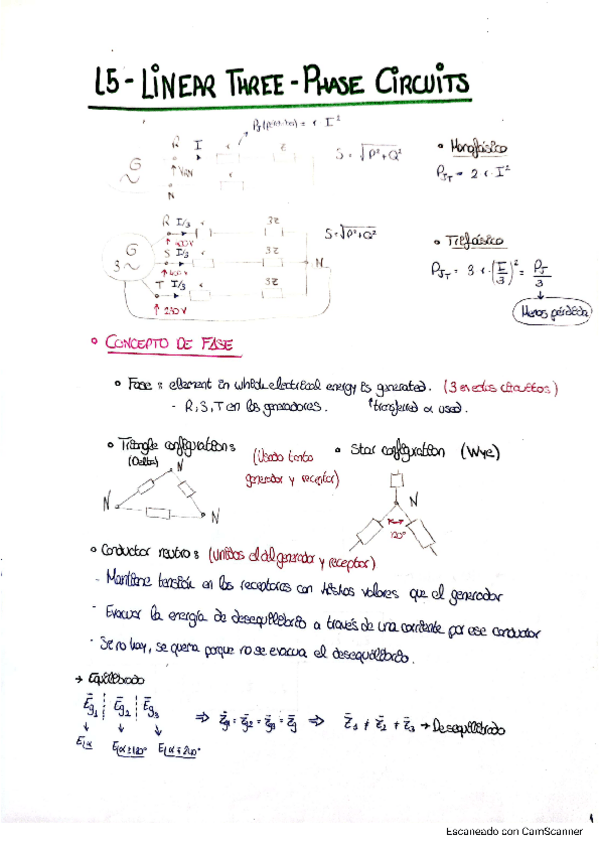 L5 - LINEAR THREE - PHASE CIRCUITS
R I
P_J(pérdidas) = r · I²
r
Z
S = √P²+Q²
G
~
↑ V_RN
N
• Monofásico
P_JT = 2 · r · I²
R I/3 r
3Z
S = √P²+Q²
↑ 400 V
S I/3
3Z
G
3 ~
↑ 400 V
T I/3
3Z
N
↑ 230 V
• Trifásico
P_JT = 3 · r · (I/3)² = P_J/3
Menos pérdida
• CONCEPTO DE FASE
• Fase: element in which electrical energy is generated. (3 en estos circuitos)
- R, S, T en los generadores. transferred or used.
• Triangle configurations
(Delta)
(Usado tanto
generador y receptor)
• Star configuration (Wye)
N
N
N
N
120°
• Conductor neutro: (unidos el del generador y receptor)
- Mantiene tensión en los receptores con mismos valores que el generador
- Evacuar la energía de desequilibrio a través de una corriente por ese conductor
- Si no hay, se quema porque no se evacua el desequilibrio.
→ Equilibrado
Ēg1 ¦ Ēg2 ¦ Ēg3 ⇒ Z̄g1 = Z̄g2 = Z̄g3 = Z̄g ⇒ Z̄1 ≠ Z̄2 ≠ Z̄3 → Desequilibrado
E∟α E∟α±120° E∟α±240°
1
Escaneado con CamScanner